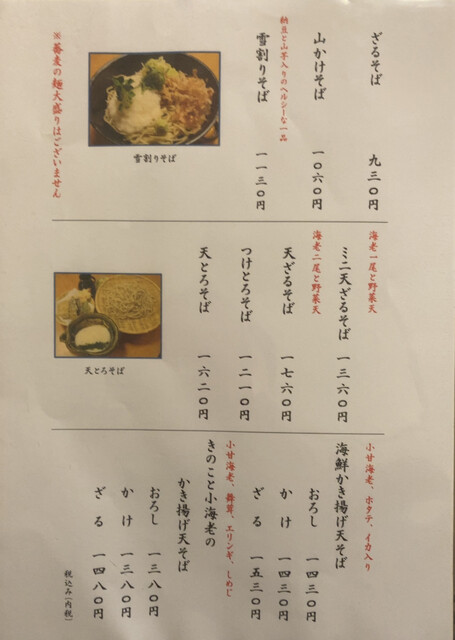 ざるそば 九三〇円
山かけそば 一〇六〇円
納豆と山芋入りのヘルシーな一品
雪割りそば 一一三〇円
雪割りそば
※蕎麦の麺大盛りはございません
海老一尾と野菜天
ミニ天ざるそば 一三六〇円
海老二尾と野菜天
天ざるそば 一七六〇円
つけとろそば 一二一〇円
天とろそば 一六二〇円
天とろそば
小甘海老、ホタテ、イカ入り
海鮮かき揚げ天そば
おろし 一四三〇円
かけ 一四三〇円
ざる 一五三〇円
小甘海老、舞茸、エリンギ、しめじ
きのこと小海老の
かき揚げ天そば
おろし 一三八〇円
かけ 一三八〇円
ざる 一四八〇円
税込み（内税）